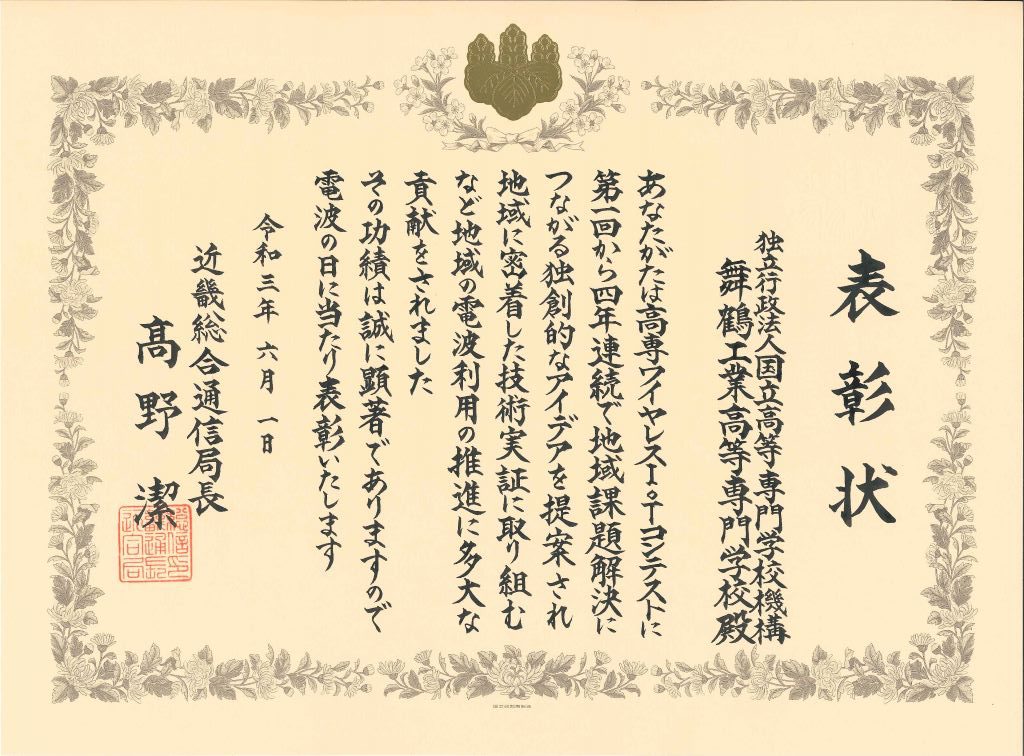 表彰状
独立行政法人国立高等専門学校機構
舞鶴工業高等専門学校殿
あなたがたは高専ワイヤレスIoTコンテストに
第一回から四年連続で地域課題解決に
つながる独創的なアイデアを提案され
地域に密着した技術実証に取り組む
など地域の電波利用の推進に多大な
貢献をされました
その功績は誠に顕著でありますので
電波の日に当たり表彰いたします
令和三年六月一日
近畿総合通信局長
髙野潔